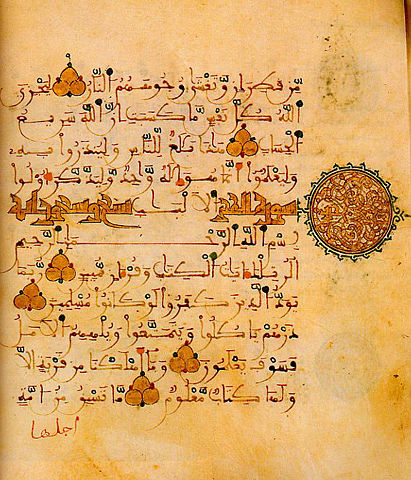 مِّن قَطِرَانٍ وَتَغْشَىٰ وُجُوهَهُمُ النَّارُ لِيَجْزِيَ
اللَّهُ كُلَّ نَفْسٍ مَّا كَسَبَتْ إِنَّ اللَّهَ سَرِيعُ
الْحِسَابِ هَٰذَا بَلَٰغٌ لِّلنَّاسِ وَلِيُنذَرُوا بِهِ
وَلِيَعْلَمُوا أَنَّمَا هُوَ إِلَٰهٌ وَٰحِدٌ وَلِيَذَّكَّرَ أُولُوا
سورة الحجر الْأَلْبَٰبِ تسع وتسعون اية
بِسْمِ اللَّهِ الرَّحْمَٰنِ الرَّحِيمِ
الٓر تِلْكَ ءَايَٰتُ الْكِتَٰبِ وَقُرْءَانٍ مُّبِينٍ رُّبَمَا
يَوَدُّ الَّذِينَ كَفَرُوا لَوْ كَانُوا مُسْلِمِينَ
ذَرْهُمْ يَأْكُلُوا وَيَتَمَتَّعُوا وَيُلْهِهِمُ الْأَمَلُ
فَسَوْفَ يَعْلَمُونَ وَمَا أَهْلَكْنَا مِن قَرْيَةٍ إِلَّا
وَلَهَا كِتَابٌ مَّعْلُومٌ مَّا تَسْبِقُ مِنْ أُمَّةٍ
أجلها